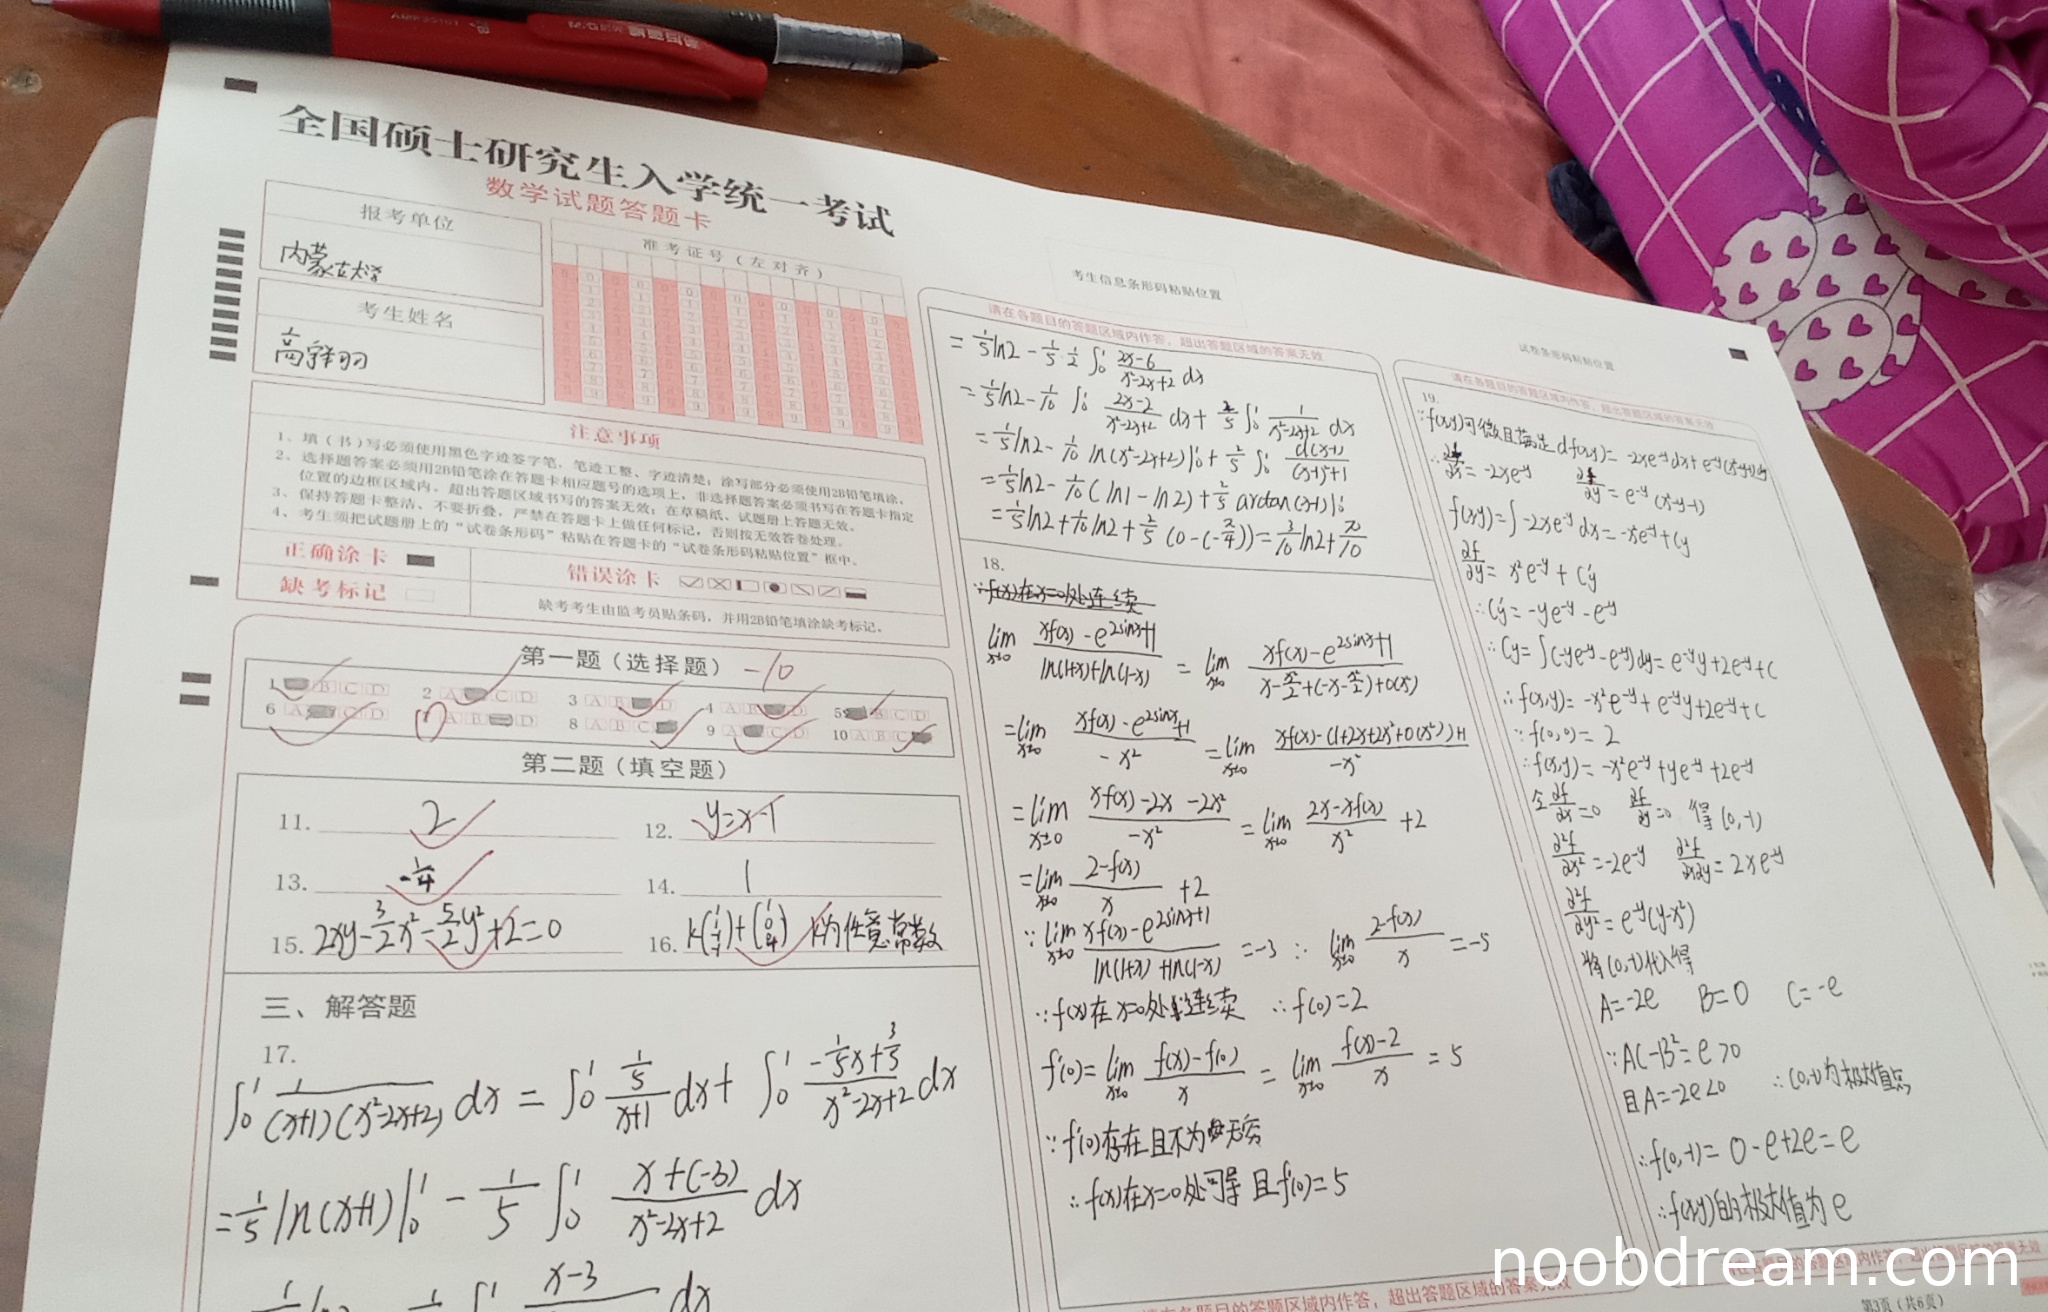 全国硕士研究生入学统一考试
数学试题答题卡
报考单位
内蒙古大学
考生姓名
准考证号（左对齐）
考生信息条形码粘贴位置
试卷条形码粘贴位置
注意事项
1、填（书）写必须使用黑色字迹签字笔，笔迹工整、字迹清楚；涂写部分必须使用2B铅笔填涂。
2、选择题答案必须用2B铅笔涂在答题卡相应题号的选项上，非选择题答案必须书写在答题卡指定
位置的边框区域内。超出答题区域书写的答案无效；在草稿纸、试题册上答题无效。
3、保持答题卡整洁、不要折叠，严禁在答题卡上做任何标记，否则按无效答卷处理。
4、考生须把试题册上的“试卷条形码”粘贴在答题卡的“试卷条形码粘贴位置”框中。
正确涂卡
错误涂卡
缺考标记
缺考考生由监考员贴条码，并用2B铅笔填涂缺考标记。
第一题（选择题） -10
第二题（填空题）
11. 2
12. y=x-1
13. -1/4
14. 1
15. 2xy-3/2x²-5/2y²+2=0
16. k为任意常数
三、解答题
17.
∫₀¹ 1/((x+1)(x²-2x+2)) dx = ∫₀¹ (1/5)/(x+1) dx + ∫₀¹ (-1/5x+3/5)/(x²-2x+2) dx
=1/5 ln(x+1)|₀¹ - 1/5 ∫₀¹ (x+(-3))/(x²-2x+2) dx
请在各题目的答题区域内作答，超出答题区域的答案无效
= 1/5 ln2 - 1/5 1/2 ∫₀¹ (2x-6)/(x²-2x+2) dx
= 1/5 ln2 - 1/10 ∫₀¹ (2x-2)/(x²-2x+2) dx + 2/5 ∫₀¹ 1/(x²-2x+2) dx
= 1/5 ln2 - 1/10 ln(x²-2x+2)|₀¹ + 2/5 ∫₀¹ d(x-1)/((x-1)²+1)
= 1/5 ln2 - 1/10 (ln1-ln2) + 2/5 arctan(x-1)|₀¹
= 1/5 ln2 + 1/10 ln2 + 2/5 (0-(-π/4)) = 3/10 ln2 + π/10
18.
∵f(x)在x=0处连续
lim x→0 (xf(x)-e^(2sinx)+1)/(ln(1+x)+ln(1-x)) = lim x→0 (xf(x)-e^(2sinx)+1)/(x-x²/2+(-x-x²/2)+o(x²))
= lim x→0 (xf(x)-e^(2sinx)+1)/(-x²) = lim x→0 (xf(x)-(1+2x+2x²+o(x²))+1)/(-x²)
= lim x→0 (xf(x)-2x-2x²)/(-x²) = lim x→0 (2x-xf(x))/x² +2
= lim x→0 (2-f(x))/x +2
∵ lim x→0 (xf(x)-e^(2sinx)+1)/(ln(1+x)+ln(1-x)) = -3 ∴ lim x→0 (2-f(x))/x = -5
∵f(x)在x=0处连续 ∴f(0)=2
f'(0)= lim x→0 (f(x)-f(0))/x = lim x→0 (f(x)-2)/x = 5
∵f'(0)存在且不为无穷
∴f(x)在x=0处可导 且f'(0)=5
请在各题目的答题区域内作答，超出答题区域的答案无效
请在各题目的答题区域内作答，超出答题区域的答案无效
19.
∵f(x,y)可微且满足df(x,y)=-2xe^-y dx+e^-y(x²-y-1)dy
∴∂f/∂x=-2xe^-y ∂f/∂y=e^-y(x²-y-1)
f(x,y)=∫-2xe^-y dx=-x²e^-y+Cy
∂f/∂y=x²e^-y+C'y
∴C'y=-ye^-y-e^-y
∴Cy=∫(-ye^-y-e^-y)dy=e^-y y+2e^-y+C
∴f(x,y)=-x²e^-y+e^-y y+2e^-y+C
∵f(0,0)=2
∴f(x,y)=-x²e^-y+ye^-y+2e^-y
令∂f/∂x=0 ∂f/∂y=0 得(0,-1)
∂²f/∂x²=-2e^-y ∂²f/∂x∂y=2xe^-y
∂²f/∂y²=e^-y(y-x²)
将(0,-1)代入得
A=-2e B=0 C=-e
∵AC-B²=e>0
且A=-2e<0 ∴(0,-1)为极大值点
∴f(0,-1)=0-e+2e=e
∴f(x,y)的极大值为e
第3页（共6页）
noobdream.com